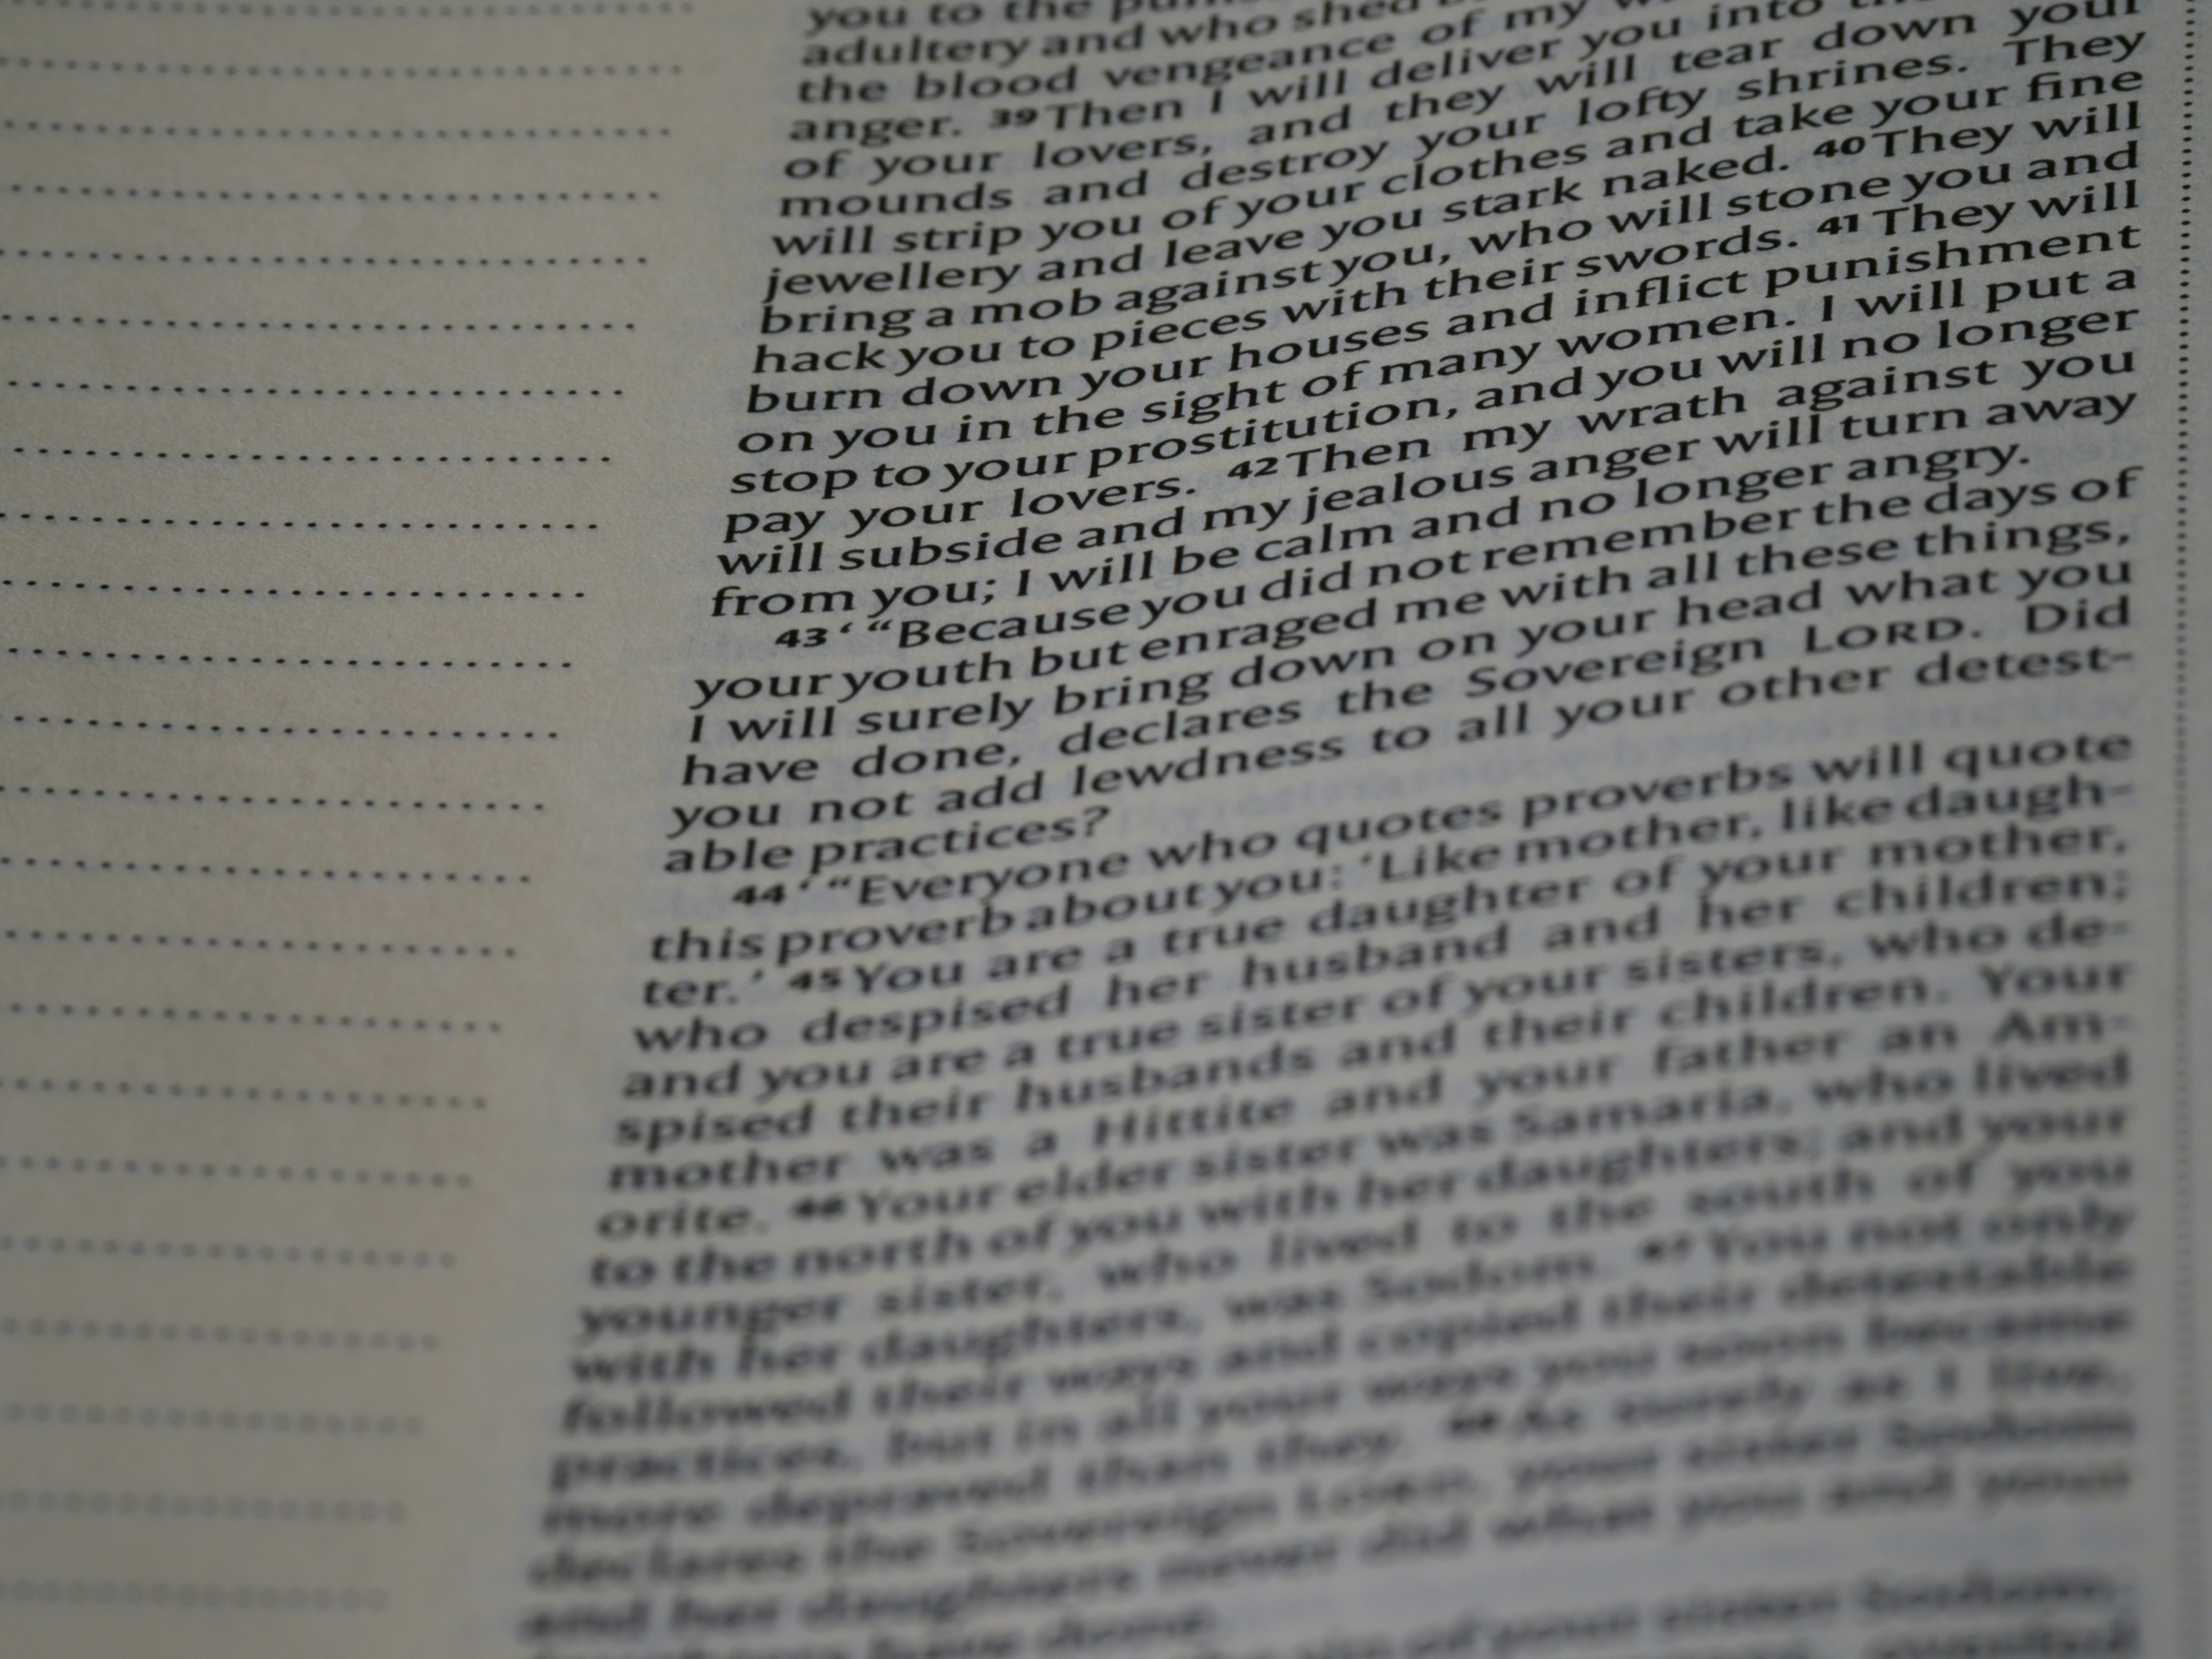 you to the
adultery and who shed
the blood vengeance of my
anger. 39 Then I will deliver you into
of your lovers, and they will tear down your
mounds and destroy your lofty shrines. They
will strip you of your clothes and take your fine
jewellery and leave you stark naked. 40 They will
bring a mob against you, who will stone you and
hack you to pieces with their swords. 41 They will
burn down your houses and inflict punishment
on you in the sight of many women. I will put a
stop to your prostitution, and you will no longer
pay your lovers. 42 Then my wrath against you
will subside and my jealous anger will turn away
from you; I will be calm and no longer angry.
43 ‘ “Because you did not remember the days of
your youth but enraged me with all these things,
I will surely bring down on your head what you
have done, declares the Sovereign LORD. Did
you not add lewdness to all your other detest-
able practices?
44 ‘ “Everyone who quotes proverbs will quote
this proverb about you: ‘Like mother, like daugh-
ter.’ 45 You are a true daughter of your mother,
who despised her husband and her children;
and you are a true sister of your sisters, who de-
spised their husbands and their children. Your
mother was a Hittite and your father an Am-
orite. 46 Your elder sister was Samaria, who lived
to the north of you with her daughters; and your
younger sister, who lived to the south of you
with her daughters, was Sodom. 47 You not only
followed their ways and copied their detestable
practices, but in all your ways you soon became
more depraved than they. 48 As surely as I live,
declares the Sovereign LORD, your sister Sodom
and her daughters never did what you and your